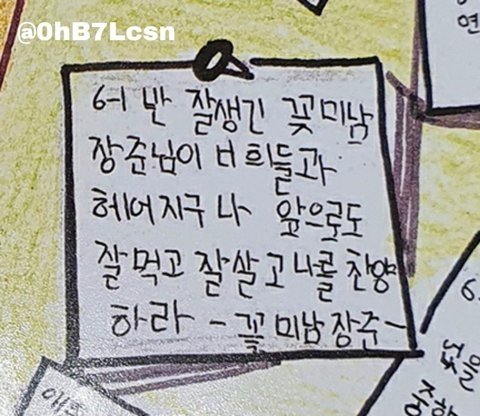 @OhB7Lcsn
연
6서 반 잘생긴 꽃미남
장준님이 너희들과
헤어지구나 앞으로도
잘먹고 잘살고 나를 찬양
하라 - 꽃미남장준 -
6